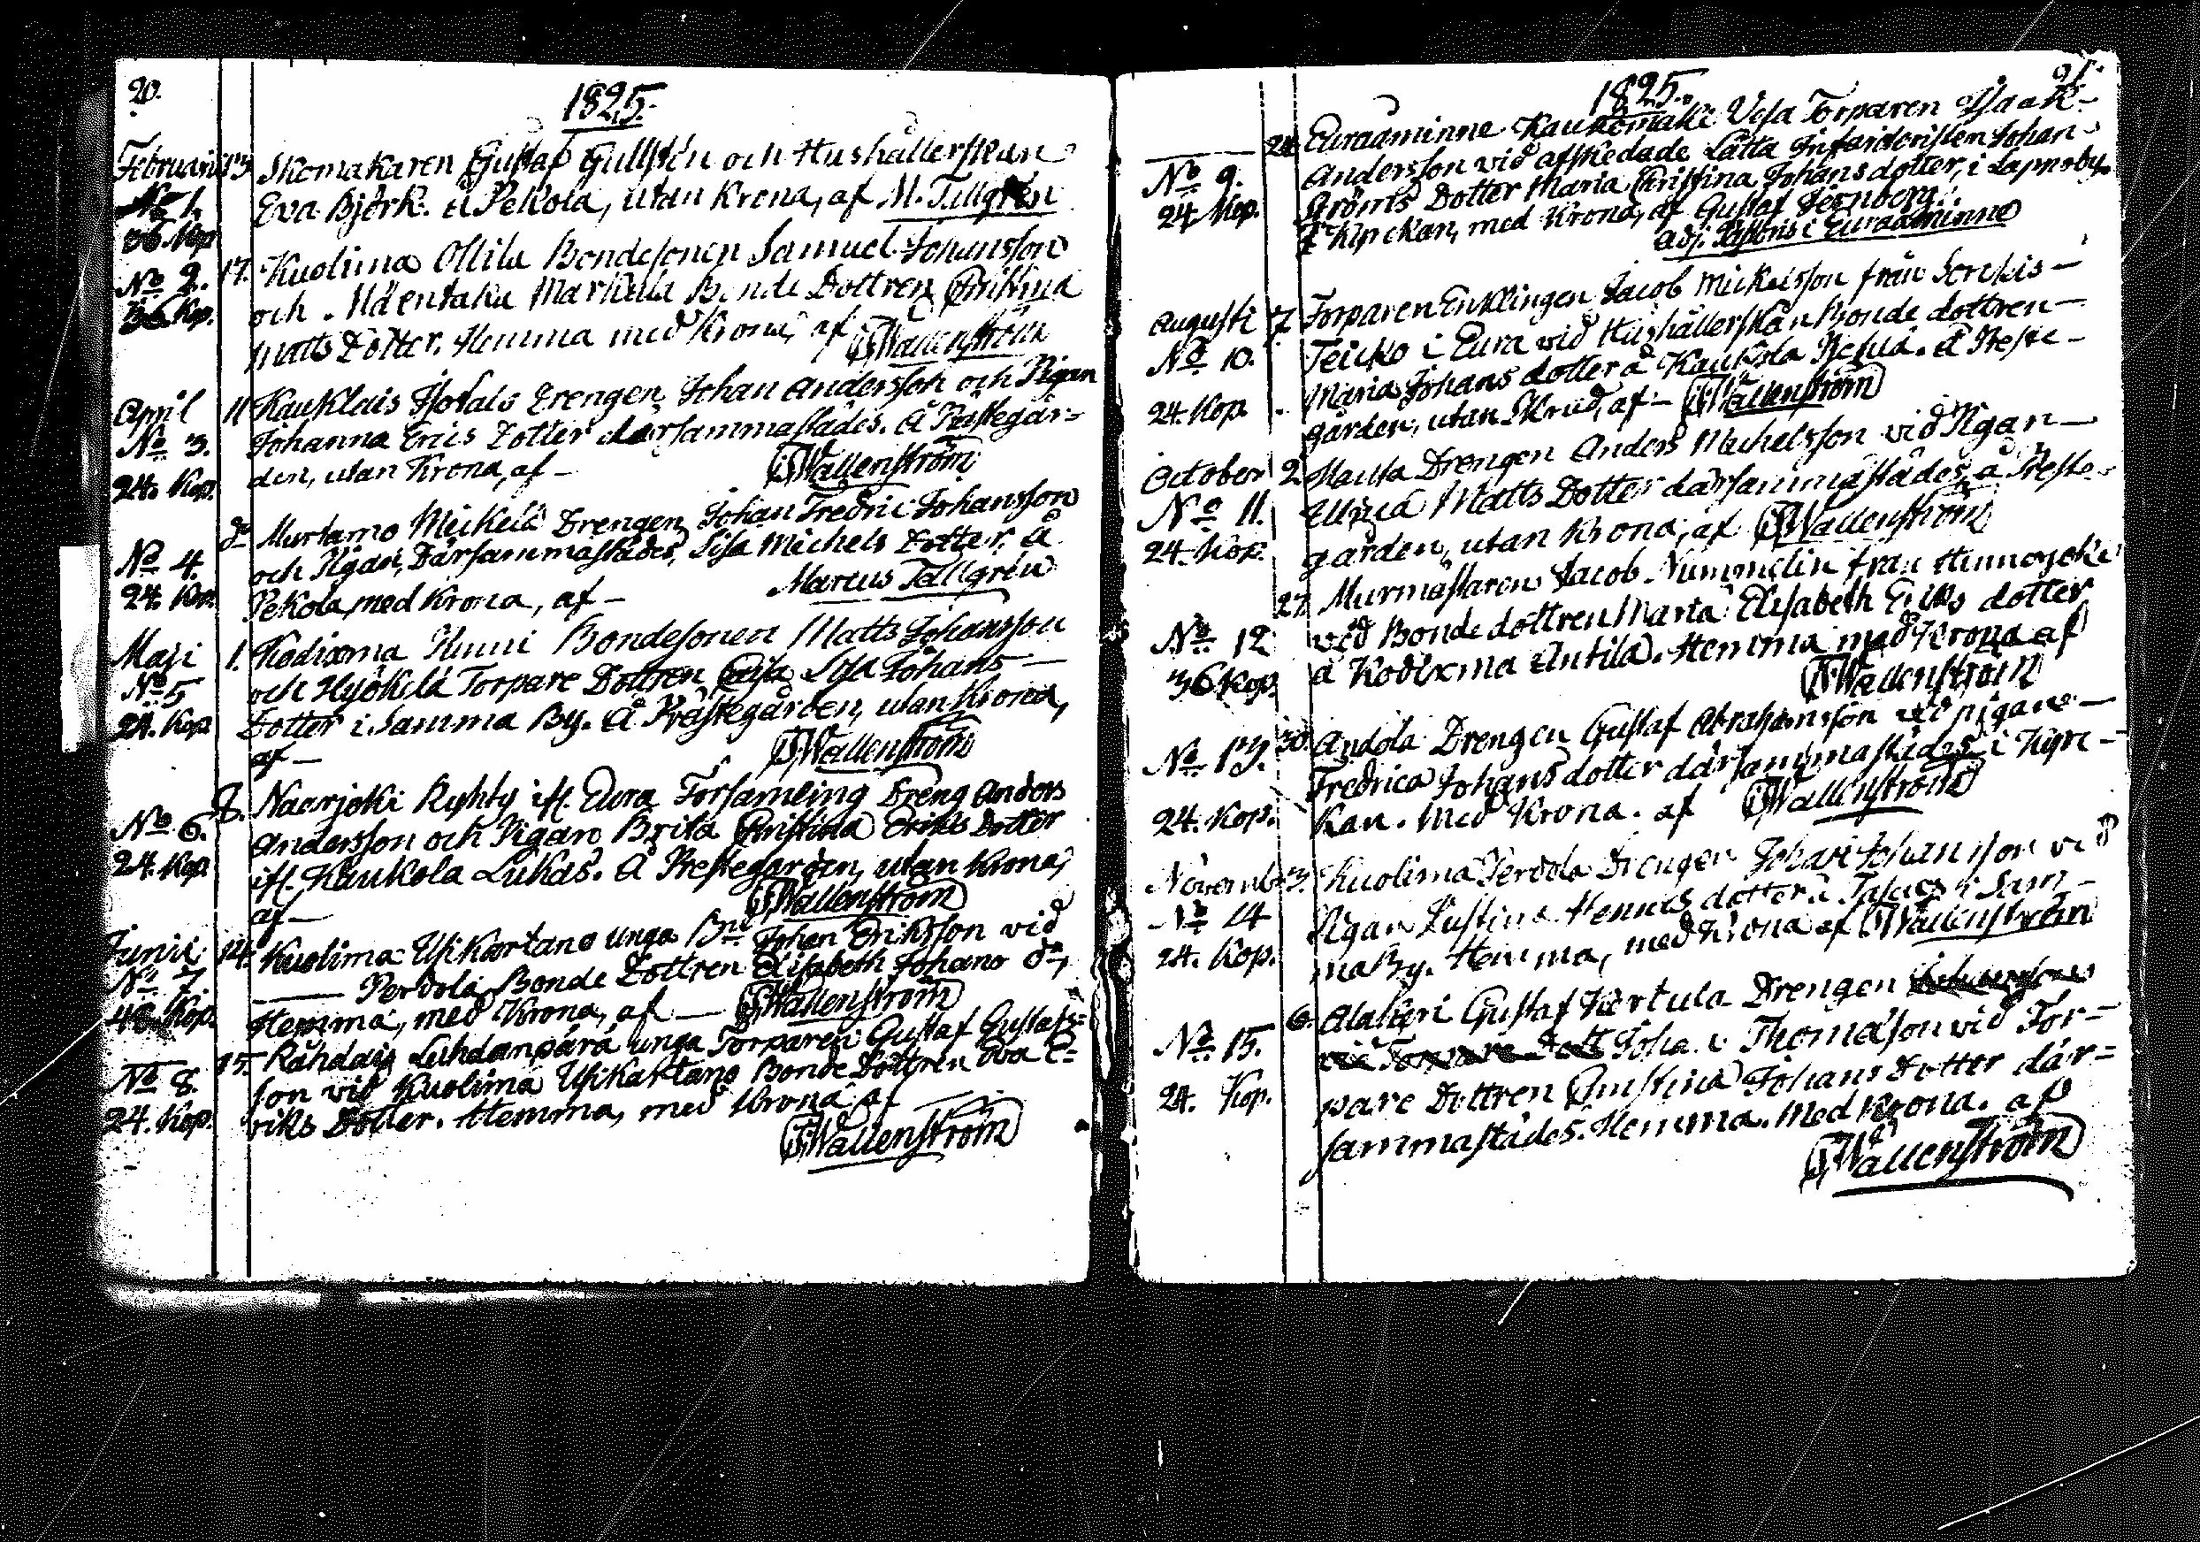 20.
1825.
Februarii 13. Skomakaren Gustaf Gullstén och Hushållerskan
No 1. Eva Björk. å Pekola, utan Krona, af M. Tallgrén
36 Kop.
No 2. 17. Kuolima Ollila Bondesonen Samuel Johansson
36 Kop. och Mäentaka Markula Bonde Dottren Christina
Matts Dotter. Hemma med Krona, af Wallenström
April 11 Kauklais Drengen Johan Andersson och Pigan
No 3. Johanna Erics Dotter därsammastädes. Å Prästegår=
24. Kop. den, utan Krona, af — Wallenström
do Murtamo Mickelä Drengen Johan Fredric Johansson
No 4. och Pigan, Därsammastädes, Lisa Michels Dotter. Å
24. Kop. Pekola, med Krona, af — Marcus Tallgrén
Maji 1. Kodixma Bondesonen Matts Johansson
No 5 och Hyökilä Torpare Dottren Lisa Johans —
24. Kop Dotter i Samma By. Å Prästegården, utan Krona,
af — Wallenström
8. Naarjoki Ryhty ifr. Eura Församling Dreng Anders
No 6. Andersson och Pigan Brita Christina Eriks Dotter
24. Kop. ifr. Kaukola Lukas. Å Prestegården, utan Krona,
af — Wallenström
Junii 14. Kuolima Usikartano unga Bn Johan Eriksson vid
No 7. Perdola Bonde Dottren Elisabeth Johans dr,
48. Kop. Hemma, med Krona, af — Wallenström
15. Rahdais Luhdanpärä unga Torparen Gustaf Gustafs=
No 8. son vid Kuolima Usikartano Bonde Dottren Eva E=
24. Kop. riks Dotter. Hemma, med Krona af —
Wallenström
21.
1825.
24. Euraåminne Kaukomäki Torparen Isaak
No 9. Andersson vid afskedade Lätta Infanteristen Johan
24 Kop. Ströms Dotter Maria Christina Johans dotter, i Lapnoby.
I Kyrckan, med Krona, af Gustaf
adj. Pastoris i Euraåminne
Augusti 7. Torparen Enklingen Jacob Mickelsson från Sorkis —
No 10. Teicko i Eura vid Hushållerskan Bonde dottren —
24. Kop. Maria Johans dotter å Kaukola å Preste —
gården, utan Skrud, af — Wallenström
October 2. Drengen Anders Michelsson vid Pigan —
No 11. Ulrica Matts Dotter därsammastädes, å Preste-
24. Kop. gården, utan Krona, af Wallenström
27. Murmästaren Jacob Nummelin från Hinnerjoki
No 12 vid Bonde dottren Marta Elisabeth Eriks dotter
36 Kop. å Kodixma Antila. Hemma med Krona af
Wallenström
No 13. 30. Audola Drengen Gustaf Abrahamsson vid pigan —
Fredrica Johans dotter därsammastädes i Kyrc —
24. Kop. kan. Med Krona. af Wallenström
Novembr 3. Kuolima Perdola Drengen Johan Johansson vid
No 14 Pigan Justina Hennics dotter å i Sam-
24. Kop. ma By. Hemma, med Krona af Wallenström
6. Alakieri Gustaf Hertula Drengen
No 15. Johan Thomasson vid Tor=
24. Kop. pare Dottren Christina Johans Dotter där=
sammastädes. Hemma. Med Krona. af
Wallenström